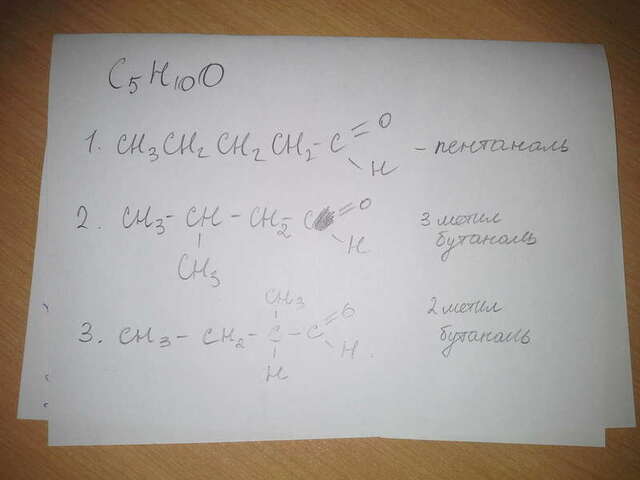 C5H10O
1. CH3CH2CH2CH2-C=O
H
- пентаналь
2. CH3-CH-CH2-C=O
H
CH3
3 метил
бутаналь
CH3
3. CH3-CH2-C-C=O
H
H
2 метил
бутаналь